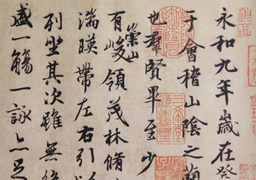 永和九年歲在癸
于會稽山陰之蘭
也羣賢畢至少
有崇山峻領茂林脩
湍暎帶左右引以
列坐其次雖無
盛一觴一詠亦足